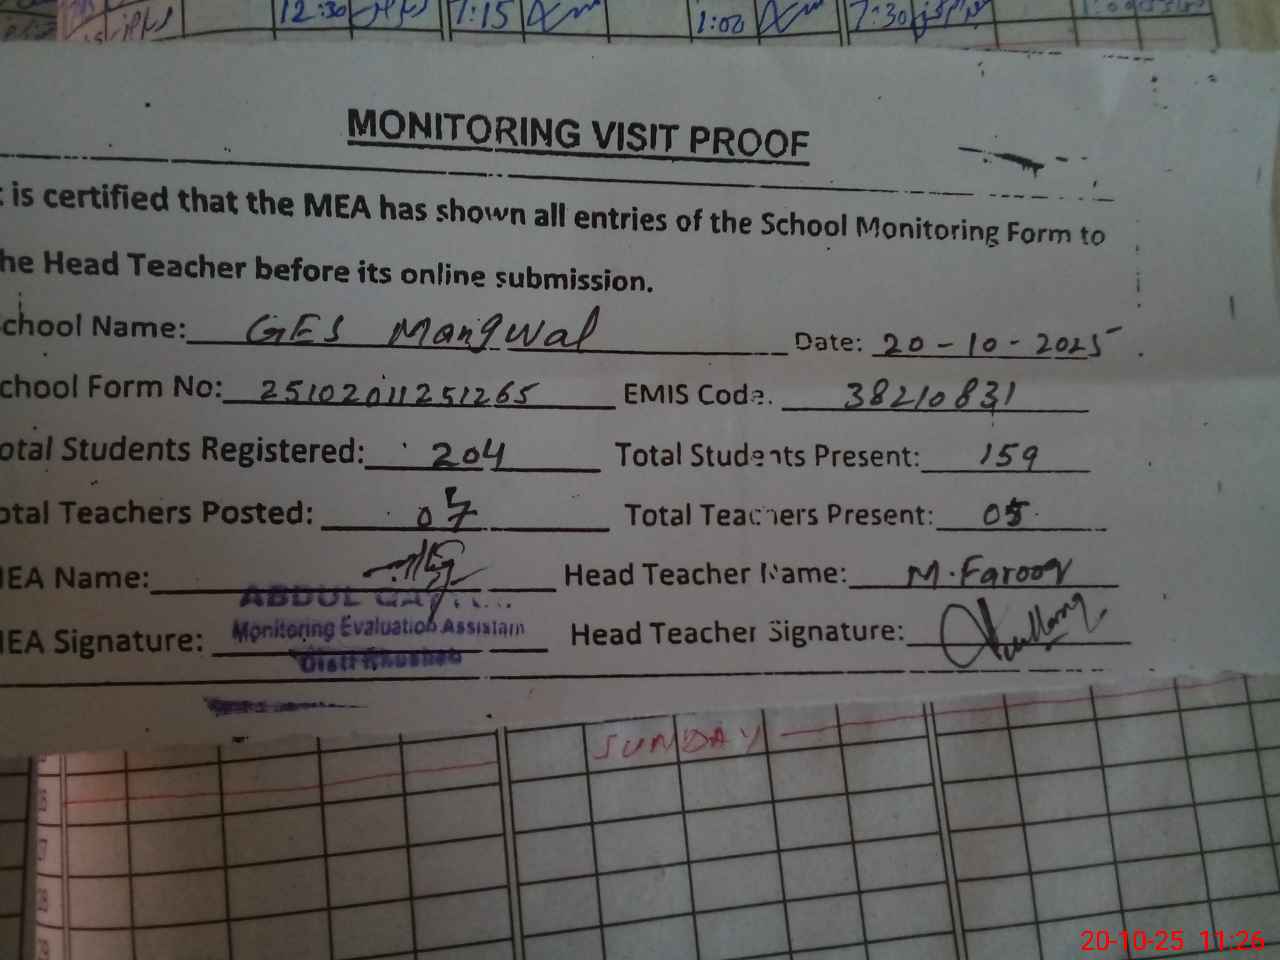 12:30 7:15 1:00 7:30
MONITORING VISIT PROOF
is certified that the MEA has shown all entries of the School Monitoring Form to
he Head Teacher before its online submission.
chool Name: GES Mangwal Date: 20-10-2025
chool Form No: 25102011251265 EMIS Code. 38210831
otal Students Registered: 204 Total Students Present: 159
otal Teachers Posted: 07 Total Teachers Present: 05
IEA Name: Head Teacher Name: M. Farooq
ABDUL
IEA Signature: Monitoring Evaluation Assistant Head Teacher Signature:
Distt Khushab
SUNDAY
20-10-25 11:26